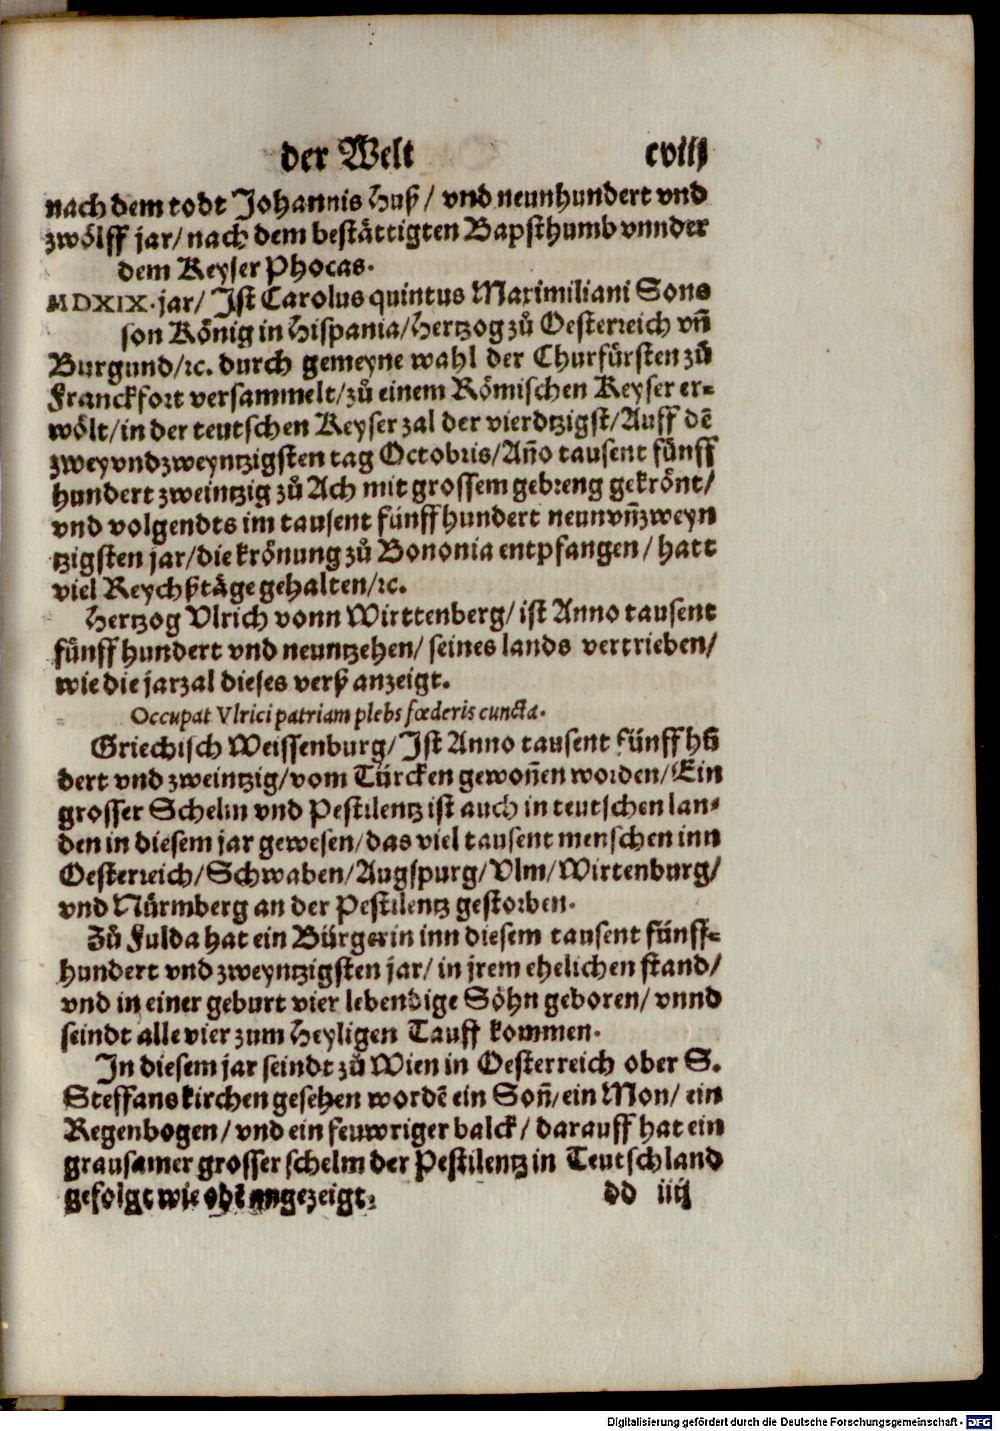 der Welt cviij
nach dem todt Johannis Huß / vnd neunhundert vnd
zwölff jar / nach dem bestättigten Bapsthumb vnnder
dem Keyser Phocas.
MDXIX. jar / Ist Carolus quintus Maximiliani Sons
son König in Hispania / Hertzog zů Oesterreich vñ
Burgund / ꝛc. durch gemeyne wahl der Churfürsten zů
Franckfort versammelt / zů einem Römischen Keyser er⸗
wölt / in der teutschen Keyser zal der vierdtzigst / Auff dē
zweyvndzweyntzigsten tag Octobris / Año tausent fünff
hundert zweintzig zů Ach mit grossem gebreng gekrönt /
vnd volgendts im tausent fünff hundert neunvñzweyn
tzigsten jar / die krönung zů Bononia entpfangen / hatt
viel Reychßtäge gehalten / ꝛc.
Hertzog Vlrich vonn Wirttenberg / ist Anno tausent
fünff hundert vnd neuntzehen / seines lands vertrieben /
wie die jarzal dieses verß anzeigt.
Occupat Vlrici patriam plebs fœderis cuncta.
Griechisch Weissenburg / Ist Anno tausent fünff hū
dert vnd zweintzig / vom Türcken gewoñen worden / Ein
grosser Schelm vnd Pestilentz ist auch in teutschen lan⸗
den in diesem jar gewesen / das viel tausent menschen inn
Oesterreich / Schwaben / Augspurg / Vlm / Wirtenburg /
vnd Nürmberg an der Pestilentz gestorben.
Zů Fulda hat ein Bürgerin inn diesem tausent fünff⸗
hundert vnd zweyntzigsten jar / in jrem ehelichen stand /
vnd in einer geburt vier lebendige Söhn geboren / vnnd
seindt alle vier zum Heyligen Tauff kommen.
In diesem jar seindt zů Wien in Oesterreich ober S.
Steffans kirchen gesehen wordē ein Soñ / ein Mon / ein
Regenbogen / vnd ein feuwriger balck / darauff hat ein
grausamer grosser schelm der Pestilentz in Teutschland
gefolgt wie obē angezeigt. dd iiij
Digitalisierung gefördert durch die Deutsche Forschungsgemeinschaft - DFG